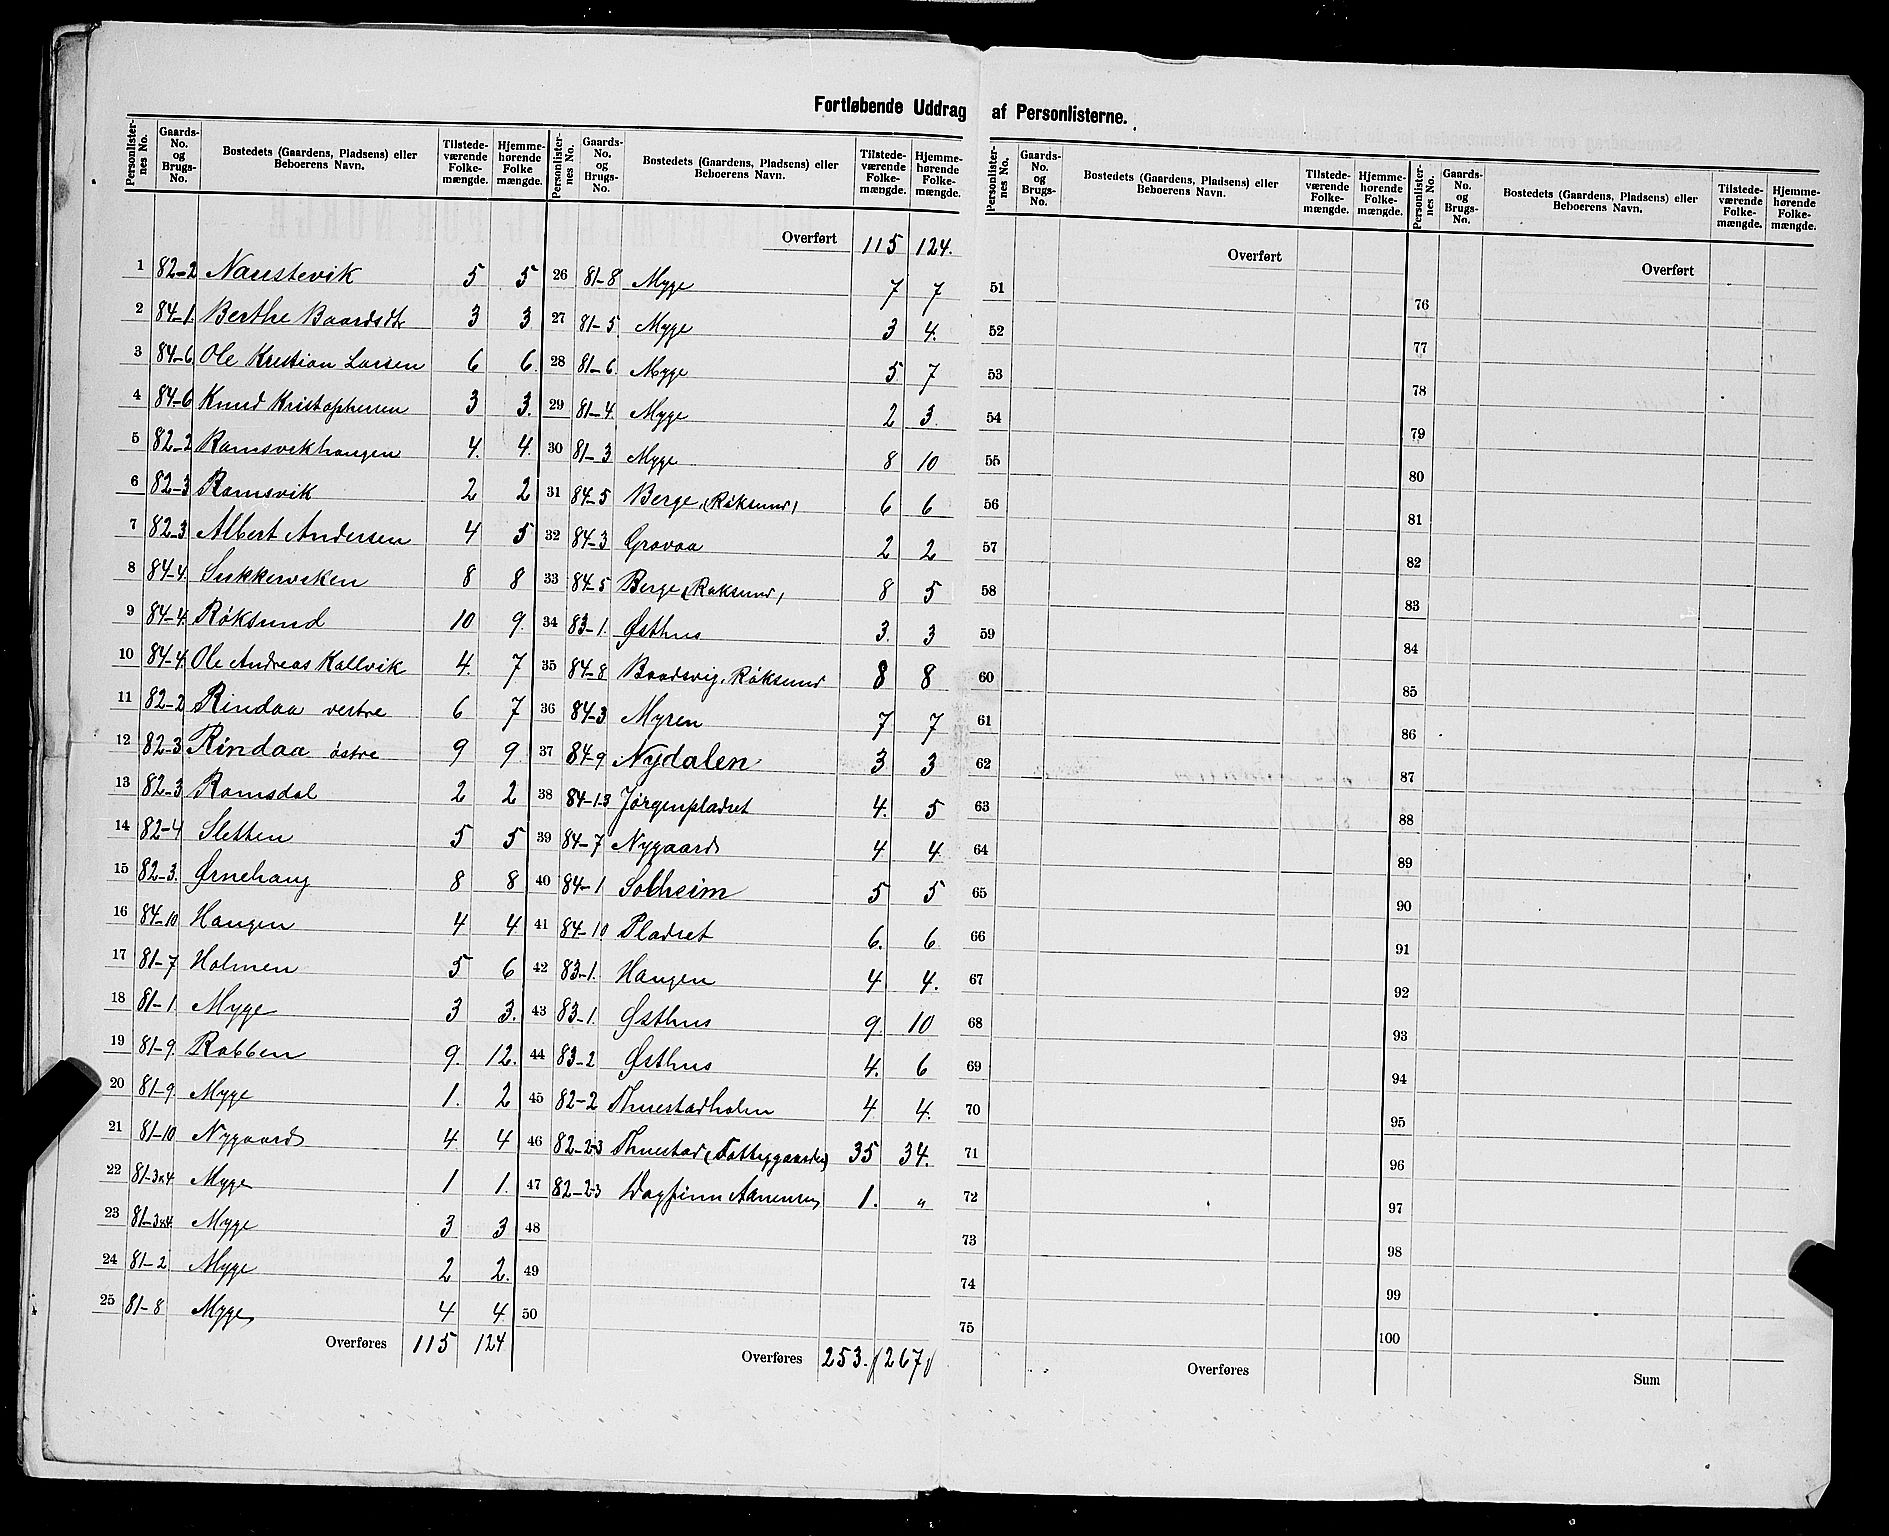 Fortløbende Uddrag af Personlisterne.
Personlister-nes No. Gaards-No. og Brugs-No. Bostedets (Gaardens, Pladsens) eller Beboerens Navn. Tilstede-værende Folke-mængde. Hjemme-hørende Folke mængde.
1 82-2 Naustevik 5 5
2 84-1. Berthe Baardsdtr 3 3.
3 84-6 Ole Kristian Larsen 6 6.
4 84-6 Knud Kristophersen 3 3.
5 82-2 Ramsvikhaugen 4. 4.
6 82-3 Ramsvik 2 2
7 82-3 Albert Andersen 4 5
8 84-4. Sukkerviken 8 8
9 84-4. Røksund 10 9.
10 84-4. Ole Andreas Kallvik 4. 7
11 82-2 Rindaa vestre 6 7
12 82-3 Rindaa østre 9 9.
13 82-3 Ramsdal 2 2
14 82-4 Sletten 5 5
15 82-3. Ørnehaug 8 8
16 84-10 Haugen 4 4
17 81-7 Holmen 5 6
18 81-1. Myge 3 3.
19 81-9. Robben 9. 12.
20 81-9. Myge 1. 2
21 81-10 Nygaard 4 4
22 81-3&4 Myge 1 1.
23 81-3&4. Myge 3 3
24 81-2 Myge 2 2.
25 81-8 Myge 4 4.
Overføres 115 124
Personlister-nes No. Gaards-No. og Brugs-No. Bostedets (Gaardens, Pladsens) eller Beboerens Navn. Tilstede-værende Folke-mængde. Hjemme-hørende Folke-mængde.
Overført 115 124.
26 81-8 Myge 7 7
27 81-5. Myge 3 4.
28 81-6. Myge 5. 7
29 81-4. Myge 2 3.
30 81-3 Myge 8 10
31 84-5 Berge, (Røksund) 6 6
32 84-3 Gravaa 2 2
33 84-5 Berge (Røksund) 8 5
34 83-1. Østhus 3. 3
35 84-8 Baardsvig, Røksund 8 8
36 84-3 Myren 7 7
37 84-9 Nydalen 3 3
38 84-1.3 Jørgenpladset 4. 5
39 84-7 Nygaard 4 4
40 84-1 Solheim 5 5
41 84-10 Pladset 6. 6
42 83-1. Haugen 4 4.
43 83-1. Østhus 9 10
44 83-2 Østhus 4. 6
45 82-2 Thuestadholm 4 4.
46 82-2.3 Thuestad (Fattiggaarden) 35 34.
47 82-2.3 Dagfinn Aanensen 1. "
48
49
50
Overføres 253. 267
Personlister-nes No. Gaards-No. og Brugs-No. Bostedets (Gaardens, Pladsens) eller Beboerens Navn. Tilstede-værende Folke-mængde. Hjemme-hørende Folke-mængde.
Overført
51
52
53
54
55
56
57
58
59
60
61
62
63
64
65
66
67
68
69
70
71
72
73
74
75
Overføres
Personlister-nes No. Gaards-No. og Brugs-No. Bostedets (Gaardens, Pladsens) eller Beboerens Navn. Tilstede-værende Folke-mængde. Hjemme-hørende Folke-mængde.
Overført
76
77
78
79
80
81
82
83
84
85
86
87
88
89
90
91
92
93
94
95
96
97
98
99
100
Sum